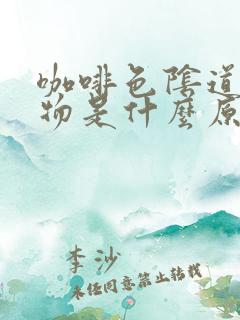 咖啡色陰道
物是什麼原
李沙
未经同意禁止转载